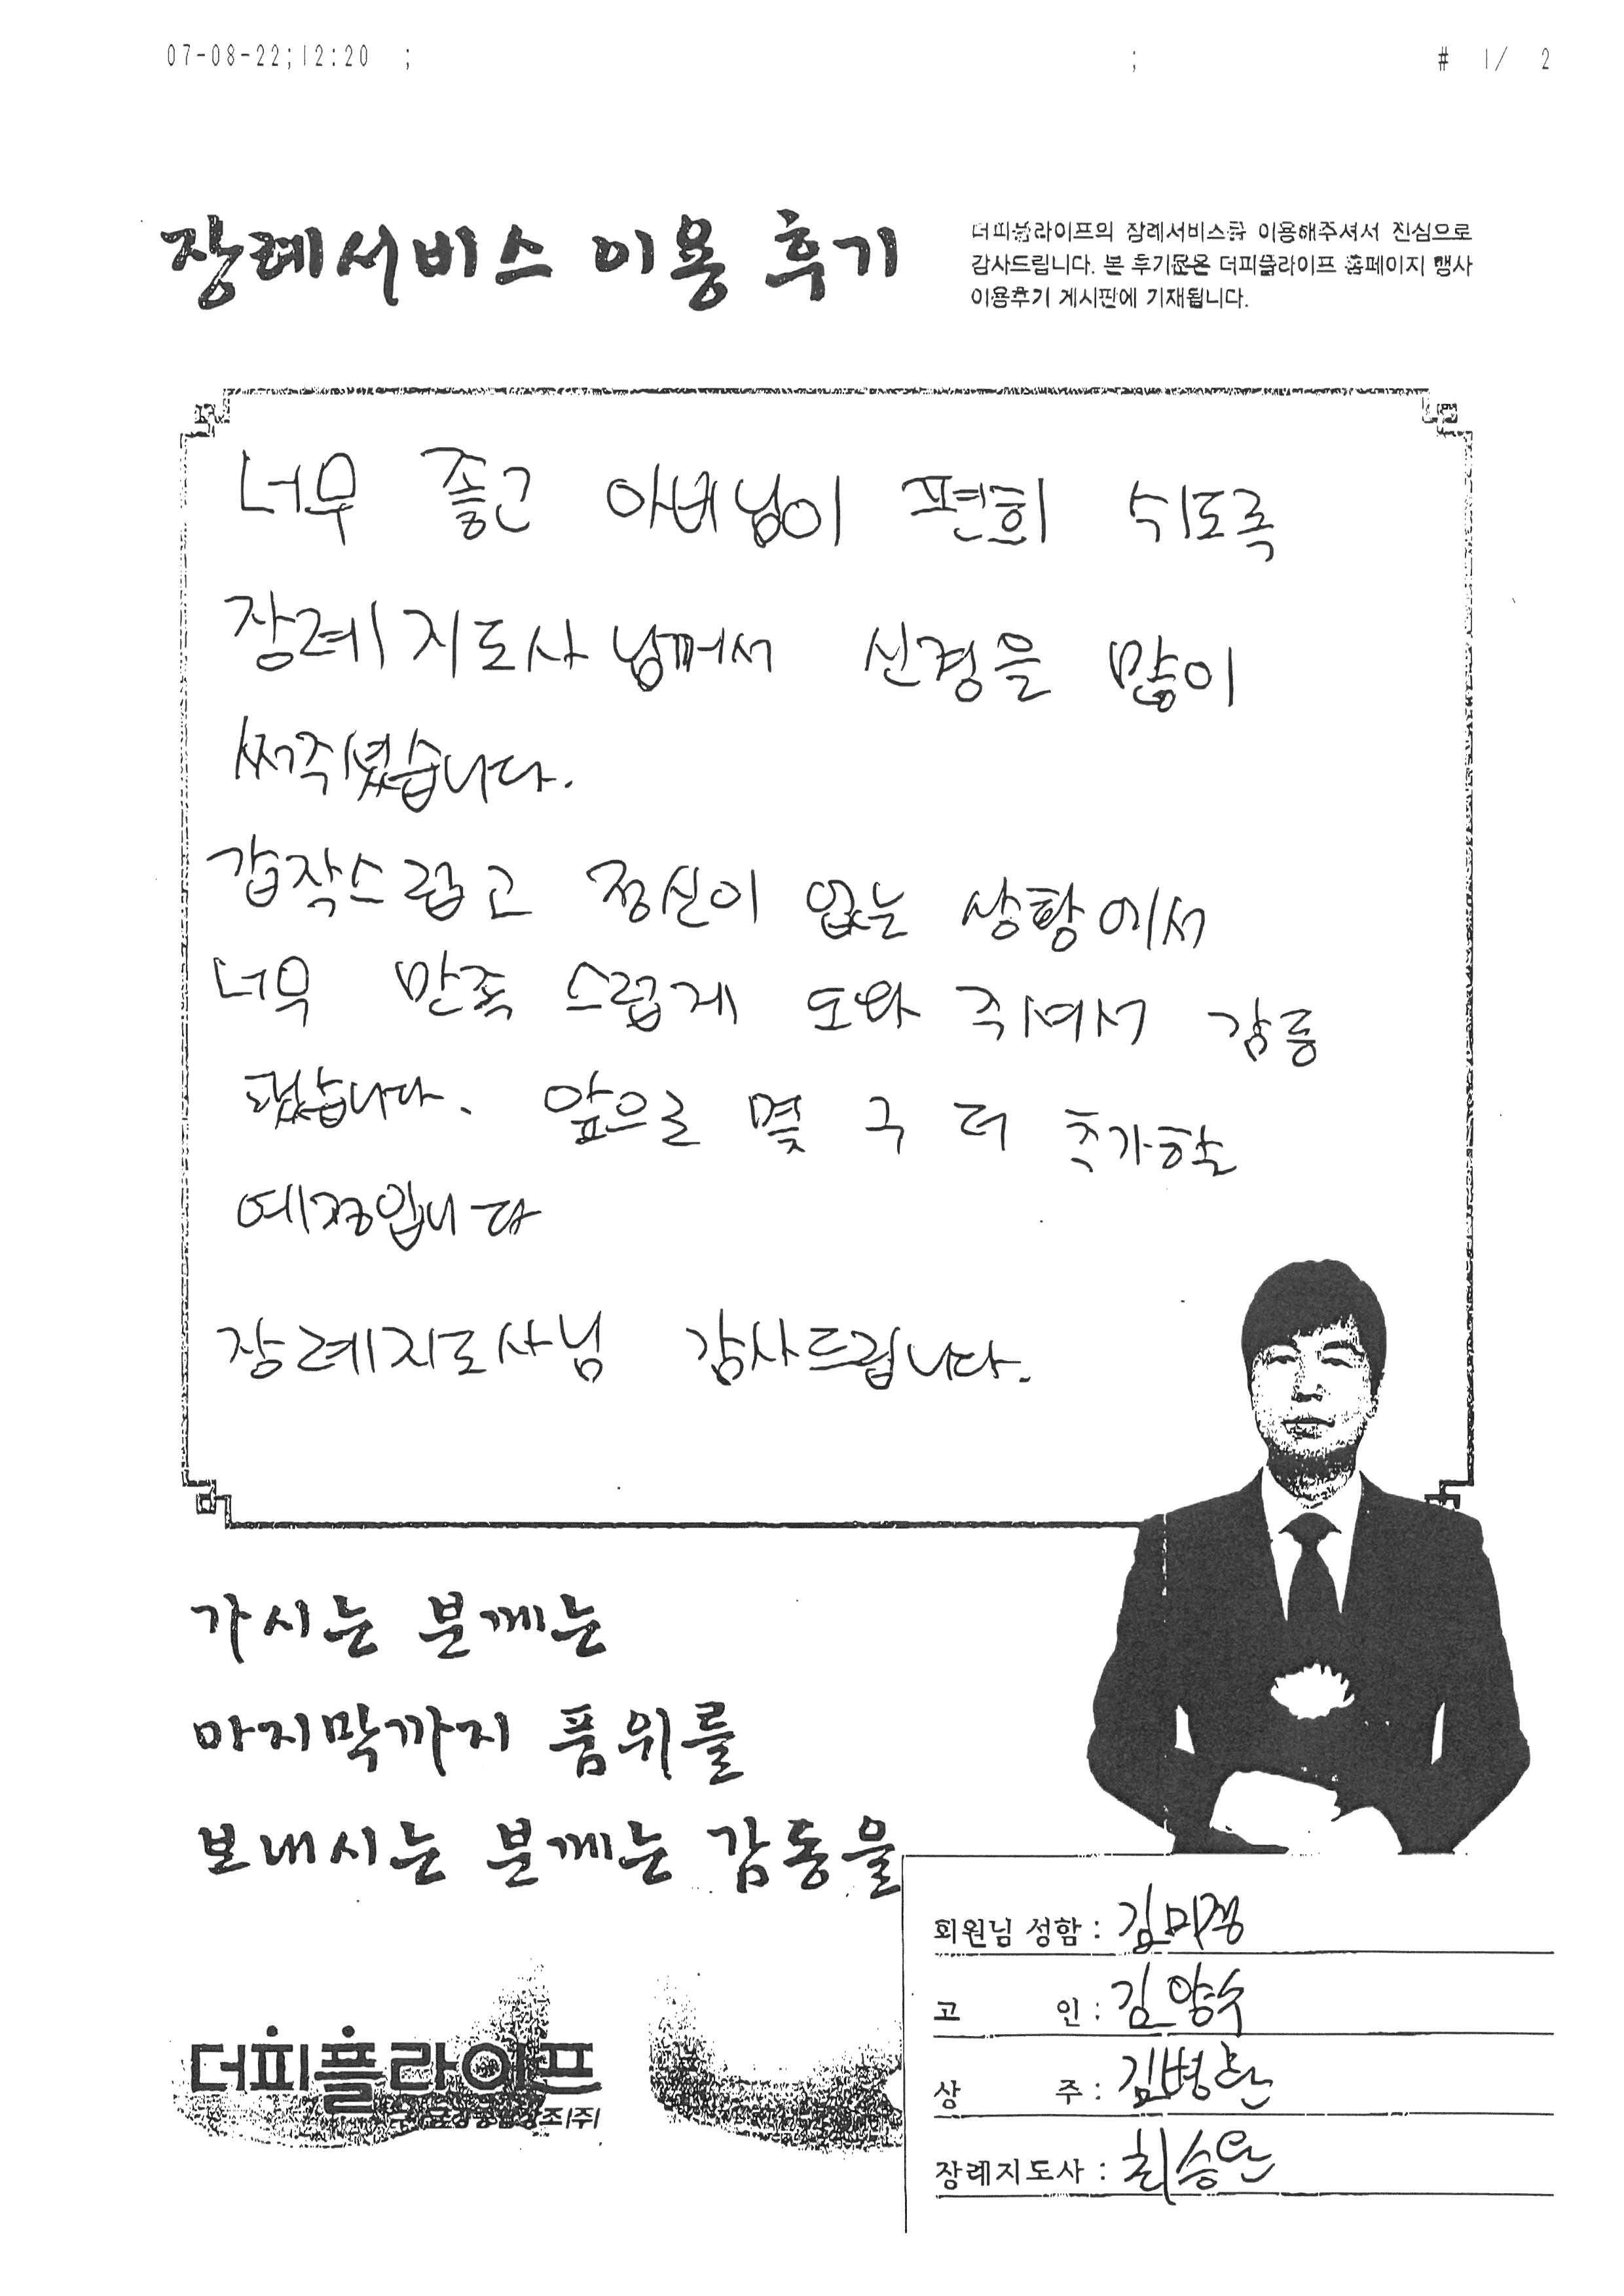 07-08-22;12:20 ; ; # 1/ 2
장례서비스 이용 후기
더피플라이프의 장례서비스를 이용해주셔서 진심으로
감사드립니다. 본 후기문은 더피플라이프 홈페이지 행사
이용후기 게시판에 기재됩니다.
너무 좋고 아버님이 편희 쉬도록
장례지도사님께서 신경을 많이
써주셨습니다.
갑작스럽고 정신이 없는 상황에서
너무 만족스럽게 도와주셔서 감동
됐습니다. 앞으로 몇 구 더 추가할
예정입니다
장례지도사님 감사드립니다.
가시는 분께는
마지막까지 품위를
보내시는 분께는 감동을
더피플라이프
회원님 성함 : 김미경
고 인 : 김양수
상 주 : 김병환
장례지도사 : 최승완